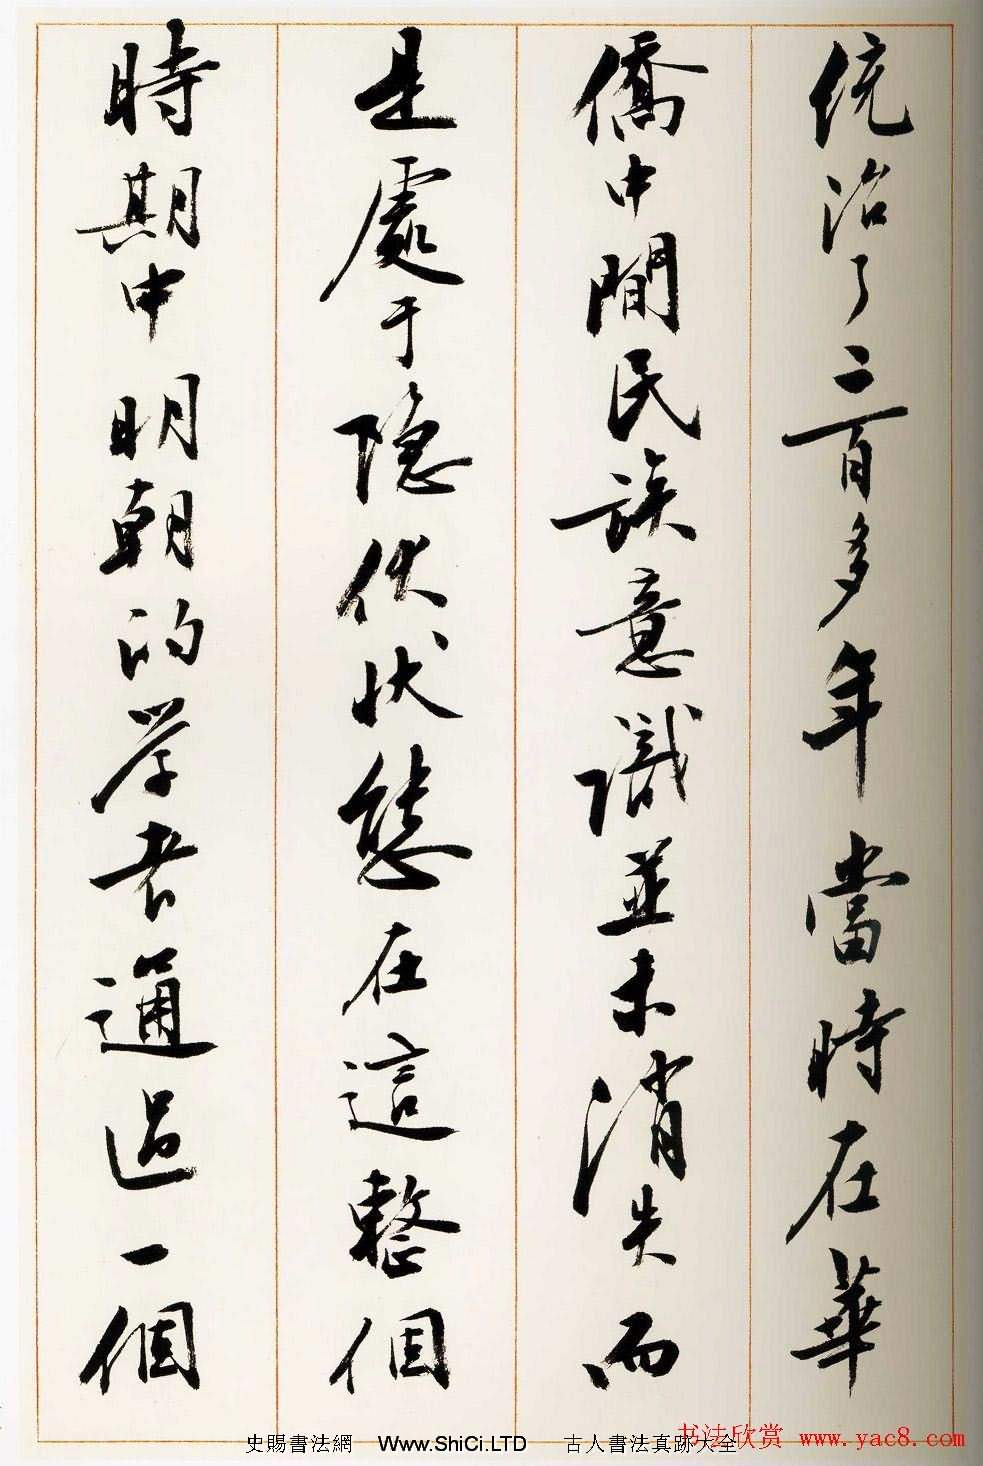 统治了二百多年 當時在華
僑中間民族意識並未消失而
是處于隐伏状態在這整個
時期中 明朝的学者通过一個
史賜書法網 Www.ShiCi.LTD 古人書法真跡大全
书法欣赏 www.yac8.com